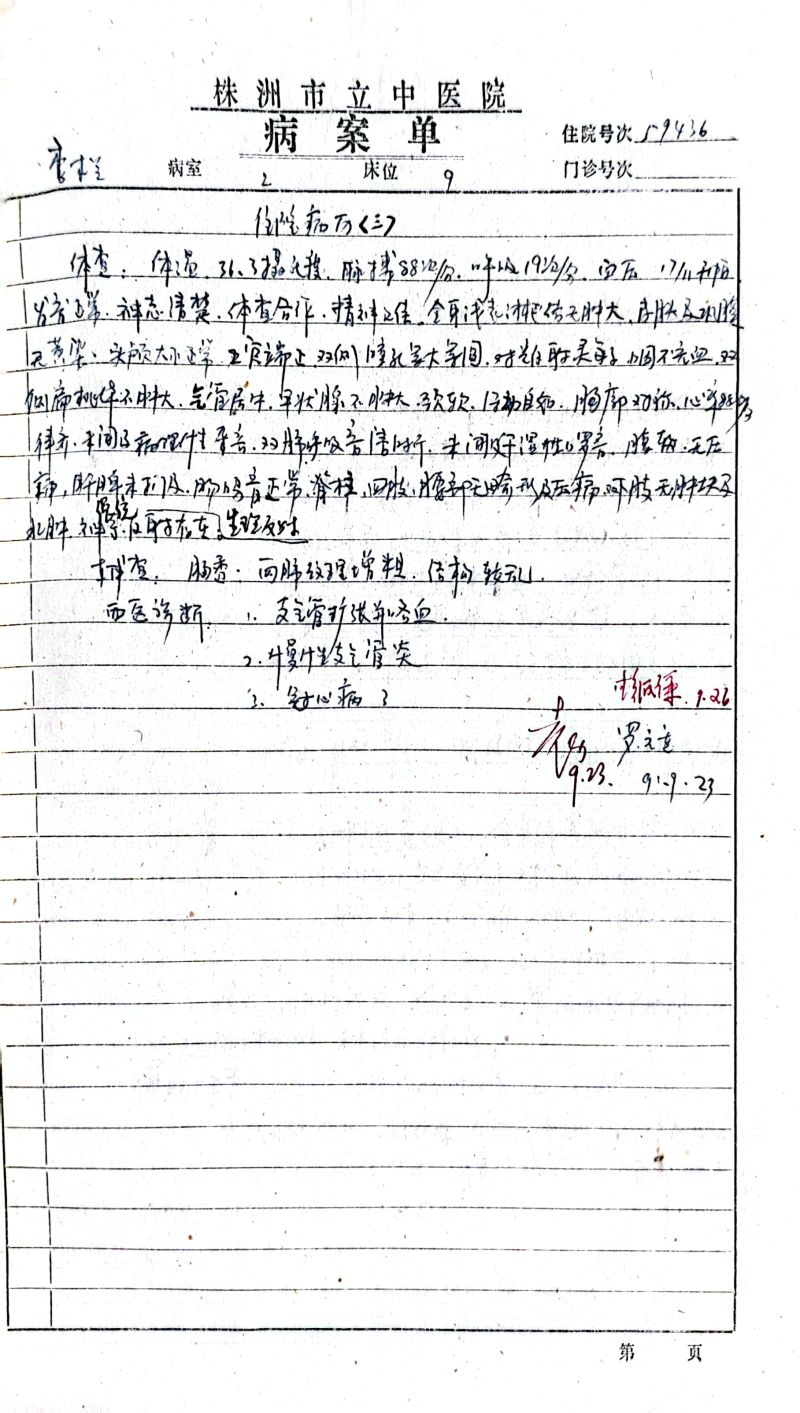 株洲市立中医院
病案单
住院号次 59436
病室 2 床位 9 门诊号次
住院病历(三)
体查: 体温 36.3摄氏度. 脉搏88次/分. 呼吸19次/分. 血压 17/11千帕
发育正常. 神志清楚. 体查合作. 精神正佳. 全身浅表淋巴结无肿大, 皮肤及巩膜
无黄染. 头颅大小正常. 五官端正. 双侧瞳孔等大等圆. 对光反射灵敏. 咽不充血. 双
侧扁桃体不肿大. 气管居中. 甲状腺不肿大. 颈软. 活动自如. 胸廓对称. 心率88次/分
律齐. 未闻及病理性杂音. 双肺呼吸音清晰. 未闻及干湿性啰音. 腹软. 无压
痛, 肝脾未扪及. 肠鸣音正常. 脊柱. 四肢. 腰部无畸形及压痛. 下肢无肿块及
水肿. 神经系统生理反射存在.
辅查: 胸透: 两肺纹理增粗. 结构较乱.
西医诊断: 1. 支气管扩张并咯血.
2. 慢性支气管炎
3. 冠心病?
9.26
9.23. 91.9.23
第 页